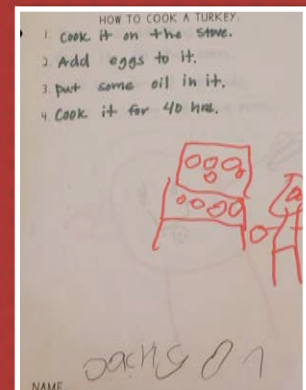 HOW TO COOK A TURKEY:
1. Cook it on the stove.
2. Add eggs to it.
3. Put some oil in it.
4. Cook it for 40 hrs.
NAME